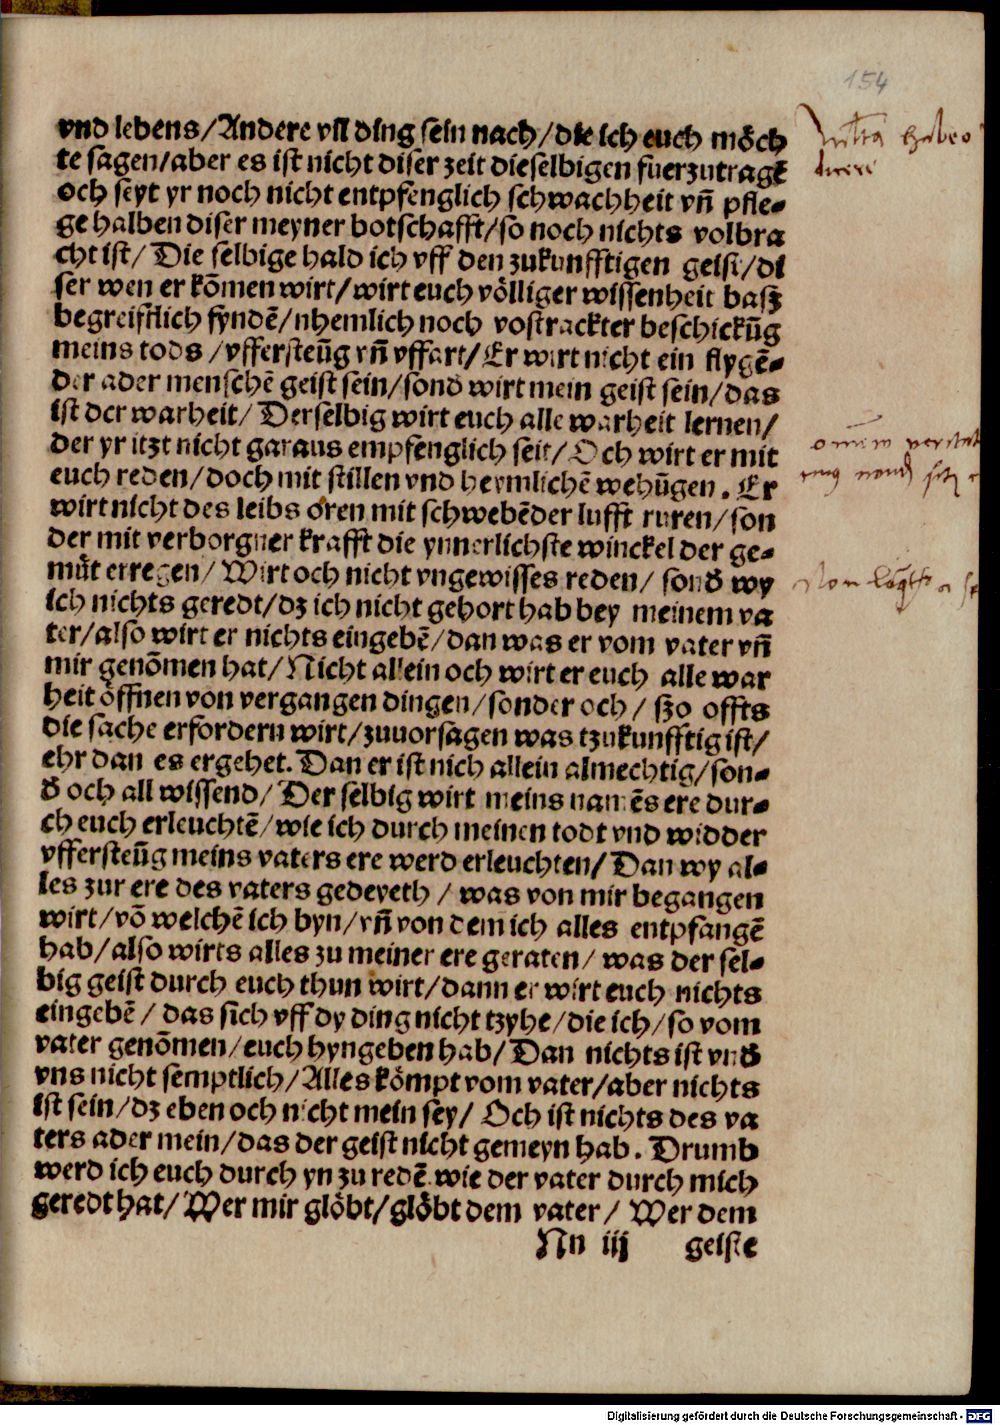 154
vnd lebens/Andere vil ding sein nach/die ich euch möch
te sagen/aber es ist nicht diser zeit dieselbigen fuerzutragē
och seyt yr noch nicht entpfenglich schwachheit vñ pfle-
ge halben diser meyner botschafft/so noch nichts volbra
cht ist/ Die selbige hald ich vff den zukunfftigen geist/di
ser wen er kōmen wirt/wirt euch völliger wissenheit basz
begreifflich fyndē/nhemlich noch vostrackter beschickūg
meins tods /vffersteūg vñ vffart/Er wirt nicht ein flygē-
der ader menschē geist sein/sond̄ wirt mein geist sein/das
ist der warheit/ Derselbig wirt euch alle warheit lernen/
der yr itzt nicht garaus empfenglich seit/Och wirt er mit
euch reden/doch mit stillen vnd heymlichē wehūgen. Er
wirt nicht des leibs oren mit schwebēder lufft ruren/son
der mit verborgner krafft die ynnerlichste winckel der ge-
müt erregen/ Wirt och nicht vngewisses reden/ sond̄ wy
ich nichts geredt/dz ich nicht gehort hab bey meinem va
ter/also wirt er nichts eingebē/dan was er vom vater vñ
mir genōmen hat/Nicht allein och wirt er euch alle war
heit öffnen von vergangen dingen/sonder och/ szo offts
die sache erfordern wirt/zuuorsagen was tzukunfftig ist/
ehr dan es ergehet. Dan er ist nich allein almechtig/son-
d̄ och all wissend/ Der selbig wirt meins namēs ere dur-
ch euch erleuchtē/wie ich durch meinen todt vnd widder
vffersteūg meins vaters ere werd erleuchten/ Dan wy al-
les zur ere des vaters gedeyeth / was von mir begangen
wirt/vō welchē ich byn/vñ von dem ich alles entpfangē
hab/also wirts alles zu meiner ere geraten/ was der sel-
big geist durch euch thun wirt/dann er wirt euch nichts
eingebē / das sich vff dy ding nicht tzyhe/die ich/so vom
vater genōmen/euch hyngeben hab/Dan nichts ist vnd̄
vns nicht semptlich/Alles kömpt vom vater/aber nichts
ist sein/dz eben och nicht mein sey/ Och ist nichts des va
ters ader mein/das der geist nicht gemeyn hab. Drumb
werd ich euch durch yn zu redē wie der vater durch mich
geredt hat/ Wer mir glöbt/glöbt dem vater/ Wer dem
Nn iij geiste
habeo
Non
Digitalisierung gefördert durch die Deutsche Forschungsgemeinschaft - DFG